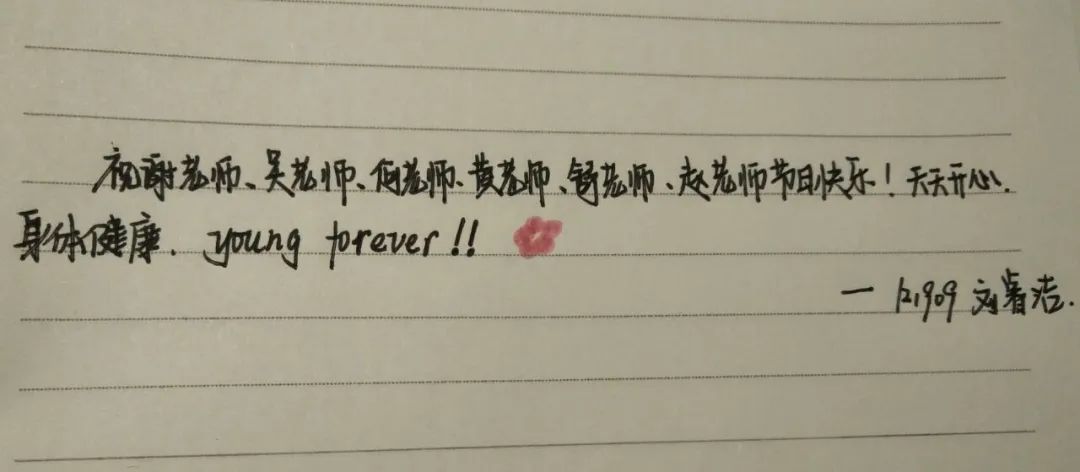 祝谢老师、吴老师、何老师、黄老师、舒老师、赵老师节日快乐！天天开心.
身体健康. young forever!!
— K1909 刘睿洁.